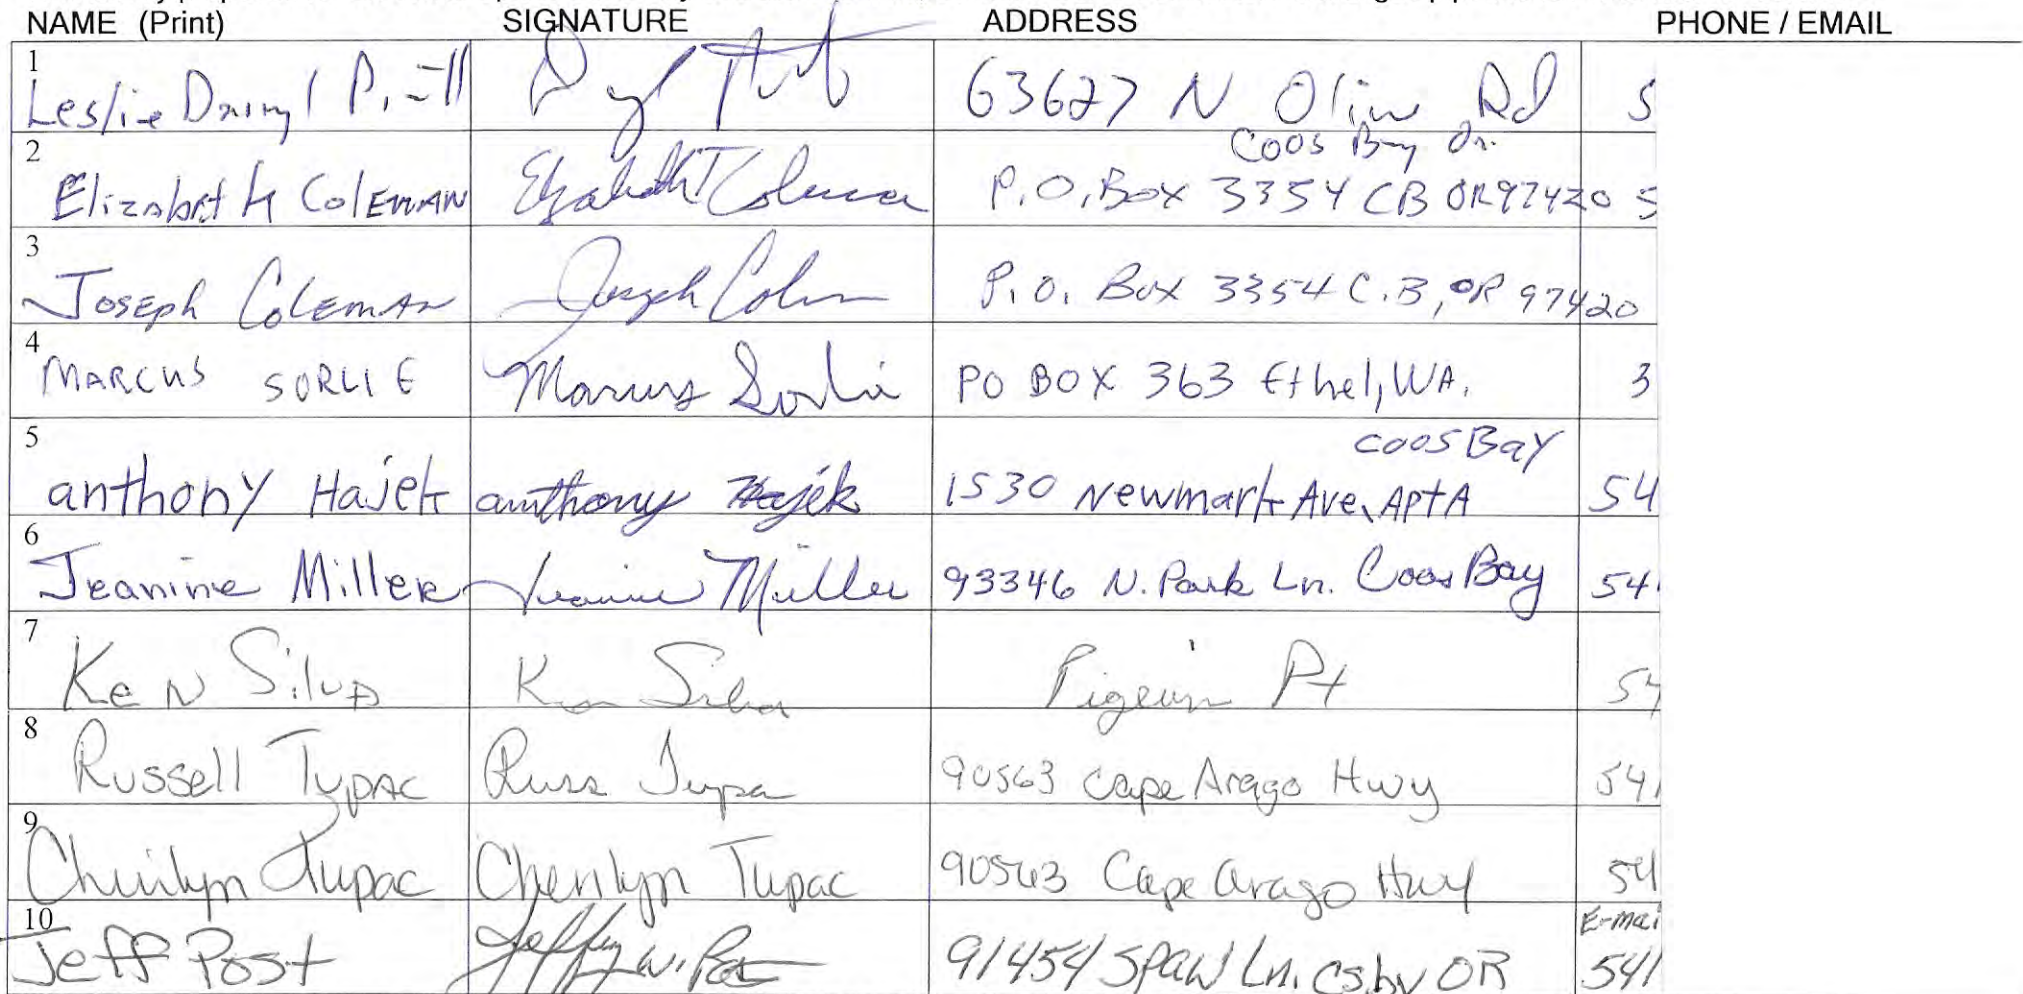 NAME (Print) SIGNATURE ADDRESS PHONE / EMAIL
1
Leslie Darryl 63627 N Olive Rd 5
Coos Bay Or.
2
Elizabeth Coleman Elizabeth Coleman P.O. Box 3354 CB OR 97420 5
3
Joseph Coleman Joseph Coleman P.O. Box 3354 C.B, OR 97420
4
MARCUS SORLIE Marcus Sorlie PO BOX 363 Ethel, WA. 3
5
Coos Bay
anthony Hajek anthony Hajek 1530 Newmark Ave, Apt A 54
6
Jeanine Miller Jeanine Miller 93346 N. Park Ln. Coos Bay 541
7
Ken Silva Ken Silva Pigeon Pt 54
8
Russell Tupac Russ Tupac 90563 Cape Arago Hwy 541
9
Cherilyn Tupac Cherilyn Tupac 90563 Cape Arago Hwy 54
10
E-mai
Jeff Post Jeffrey W. Post 91454 Spaw Ln. csby OR 541